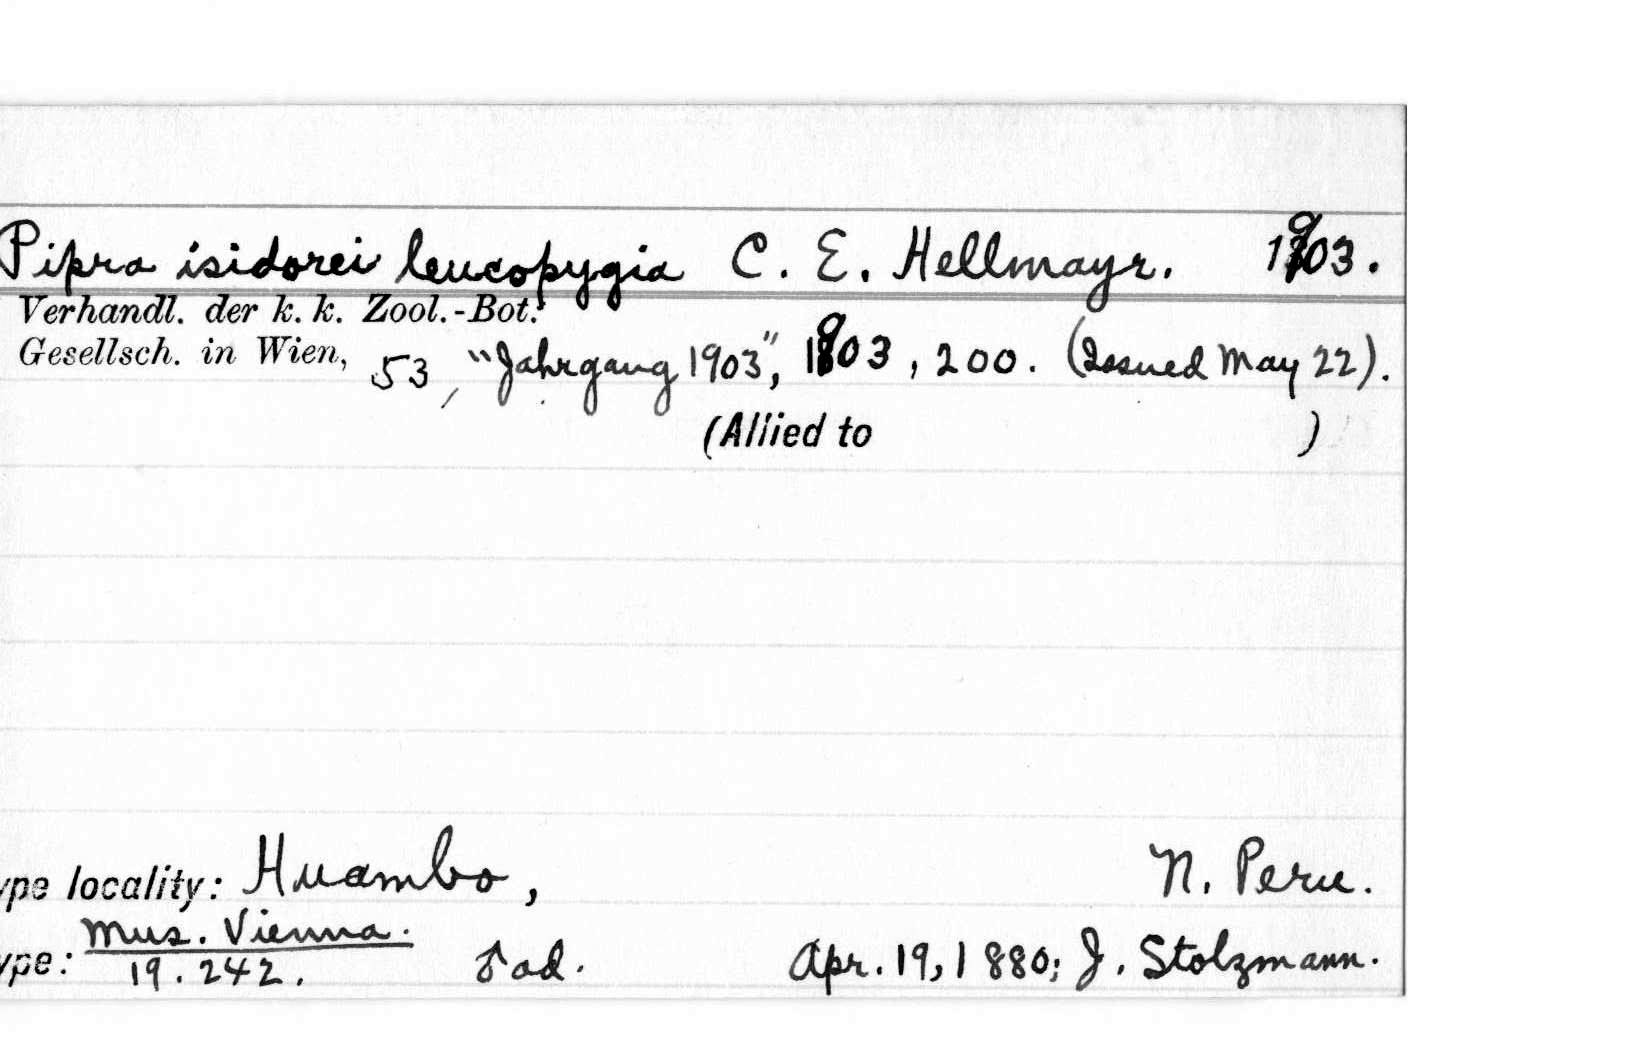 Pipra isidorei leucopygia C. E. Hellmayr. 1903.
Verhandl. der k. k. Zool.-Bot.
Gesellsch. in Wien, 53, "Jahrgang 1903", 1903, 200. (Issued May 22).
(Allied to )
ype locality: Huambo, N. Peru.
Mus. Vienna.
ype: 19.242. ♂ ad. Apr. 19, 1880; J. Stolzmann.